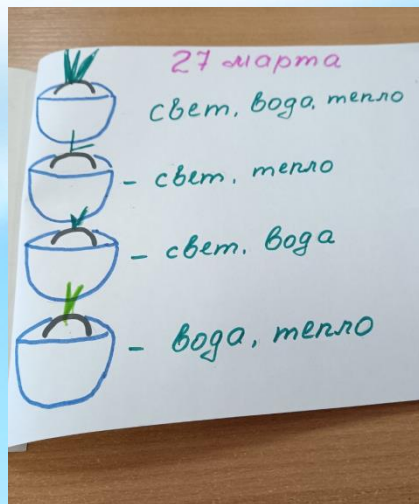 27 марта
свет, вода, тепло
- свет, тепло
- свет, вода
- вода, тепло